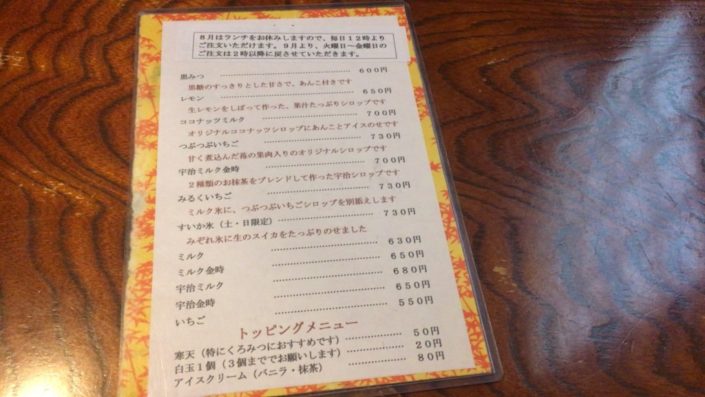 8月はランチをお休みしますので、毎日12時より
ご注文いただけます。9月より、火曜日～金曜日の
ご注文は2時以降に戻させていただきます。
黒みつ ………………………… 600円
黒糖のすっきりとした甘さで、あんこ付きです
レモン ………………………… 650円
生レモンをしぼって作った、果汁たっぷりシロップです
ココナッツミルク ………………………… 700円
オリジナルココナッツシロップにあんことアイスのせです
つぶつぶいちご ………………………… 730円
甘く煮込んだ苺の果肉入りのオリジナルシロップです
宇治ミルク金時 ………………………… 700円
2種類のお抹茶をブレンドして作った宇治シロップです
みるくいちご ………………………… 730円
ミルク氷に、つぶつぶいちごシロップを別添えします
すいか氷（土・日限定） ………………………… 730円
みぞれ氷に生のスイカをたっぷりのせました
ミルク ………………………… 630円
ミルク金時 ………………………… 650円
宇治ミルク ………………………… 680円
宇治金時 ………………………… 650円
いちご ………………………… 550円
トッピングメニュー
寒天（特にくろみつにおすすめです） ………………………… 50円
白玉1個（3個まででお願いします） ………………………… 20円
アイスクリーム（バニラ・抹茶） ………………………… 80円